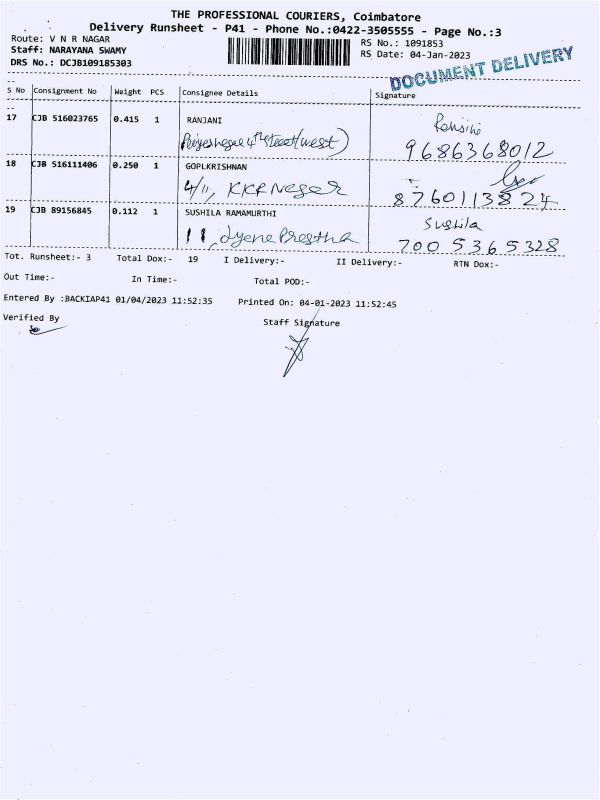 THE PROFESSIONAL COURIERS, Coimbatore
Delivery Runsheet - P41 - Phone No.:0422-3505555 - Page No.:3
Route: V N R NAGAR
Staff: NARAYANA SWAMY
DRS No.: DCJB109185303
RS No.: 1091853
RS Date: 04-Jan-2023
DOCUMENT DELIVERY
S No Consignment No Weight PCS Consignee Details Signature
17 CJB 516023765 0.415 1 RANJANI
4th street (west)
9686368012
18 CJB 516111406 0.250 1 GOPLKRISHNAN
4/11, KKR Nagar
8760113824
19 CJB 89156845 0.112 1 SUSHILA RAMAMURTHI
Sushila
11
7005365328
Tot. Runsheet:- 3 Total Dox:- 19 I Delivery:- II Delivery:- RTN Dox:-
Out Time:- In Time:- Total POD:-
Entered By :BACKIAP41 01/04/2023 11:52:35 Printed On: 04-01-2023 11:52:45
Verified By Staff Signature